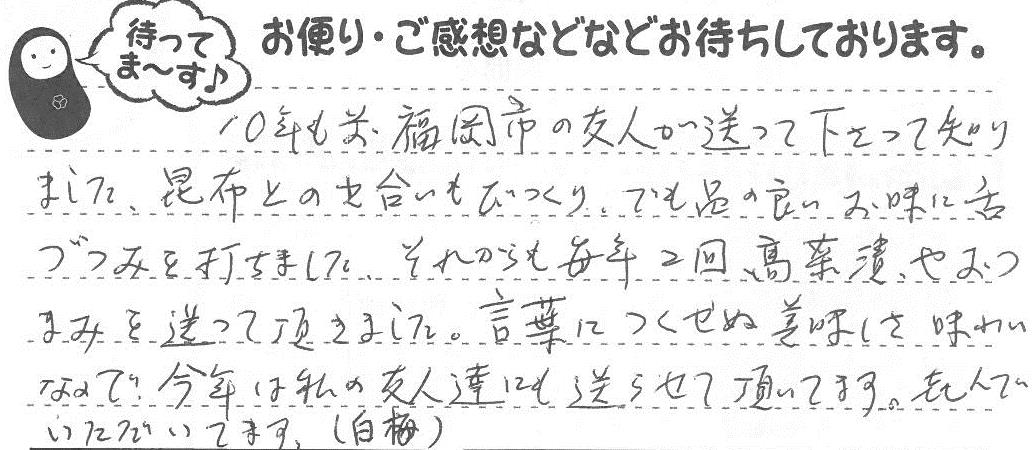 待って
ま〜す♪
お便り・ご感想などなどお待ちしております。
10年も前、福岡市の友人が送って下さって知り
ました、昆布との出合いもびっくり、でも品の良いお味に舌
づつみを打ちました、それからも毎年2回、高菜漬、やおつ
まみを送って頂きました。言葉につくせぬ美味しさ味わい
なので、今年は私の友人達にも送らせて頂いてます。喜んで
いただいてます。(白梅)